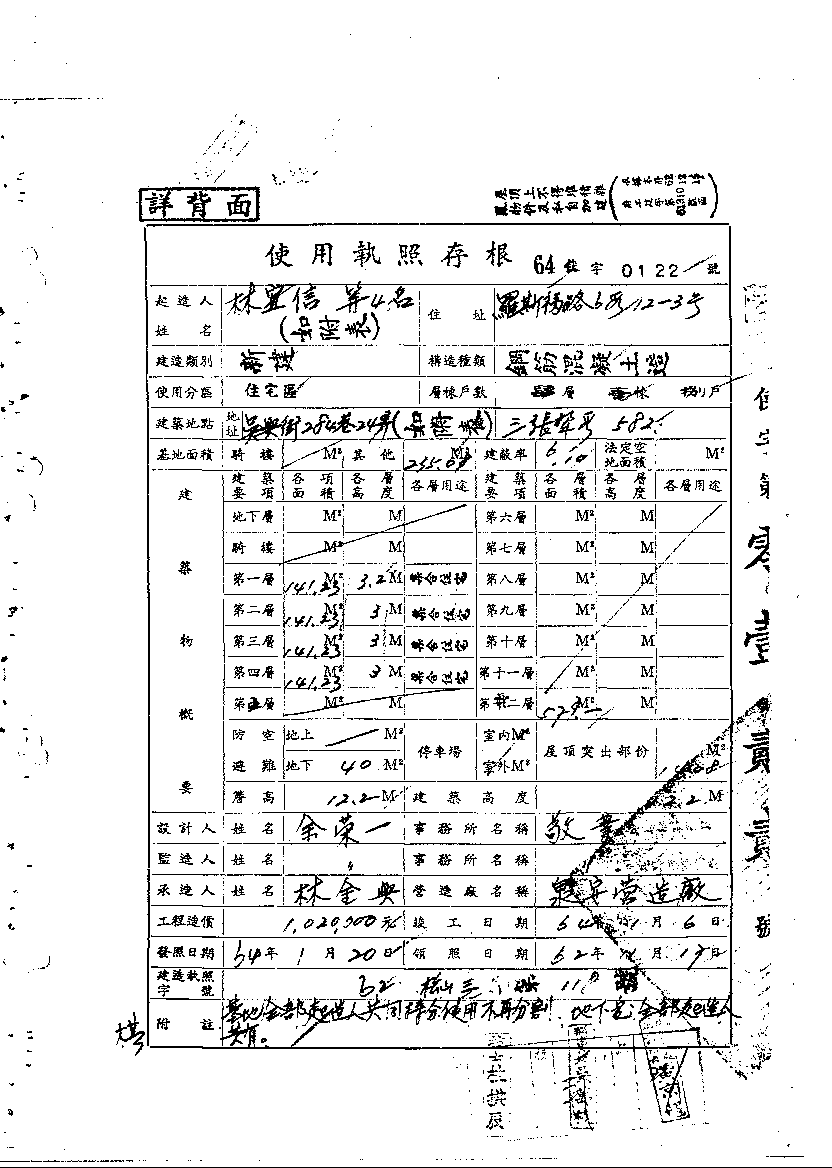 屋頂上不得堆積雜
物件及私自加建
詳背面
使用執照存根 64 使字 0122 號
起造人姓名 林宜信等4名(如附表) 住址 羅斯福路6段12-3号
建造類別 新建 構造種類 鋼筋混凝土造
使用分區 住宅區 層棟戶數 層 棟 戶
建築地點 地址 吳興街284巷24弄(如附表) 三張犁段 582
基地面積 騎樓 M² 其他 M² 建蔽率 法定空地面積 M²
建築物概要 建築要項 各項面積 各層高度 各層用途 建築要項 各層面積 各層高度 各層用途
地下層 M² M 第六層 M² M
騎樓 M² M 第七層 M² M
第一層 141.23 M² 3.2 M 集合住宅 第八層 M² M
第二層 141.23 M² 3 M 集合住宅 第九層 M² M
第三層 141.23 M² 3 M 集合住宅 第十層 M² M
第四層 141.23 M² 3 M 集合住宅 第十一層 M² M
第五層 M² M 第十二層 M² M
防空避難 地上 M² 停車場 室內M² 屋頂突出部份 M²
地下 40 M² 室外M²
簷高 12.2 M 建築高度 M
設計人 姓名 余榮一 事務所名稱 敬業
監造人 姓名 〃 事務所名稱
承造人 姓名 林金典 營造廠名稱 營造廠
工程造價 1,020,000元 竣工日期 64年1月6日
發照日期 64年1月20日 領照日期 62年 月17日
建造執照字號 62 松山三
附註 基地全部起造人共同持分使用不再分割 地下室全部起造人
共有。
使字第零壹貳貳號